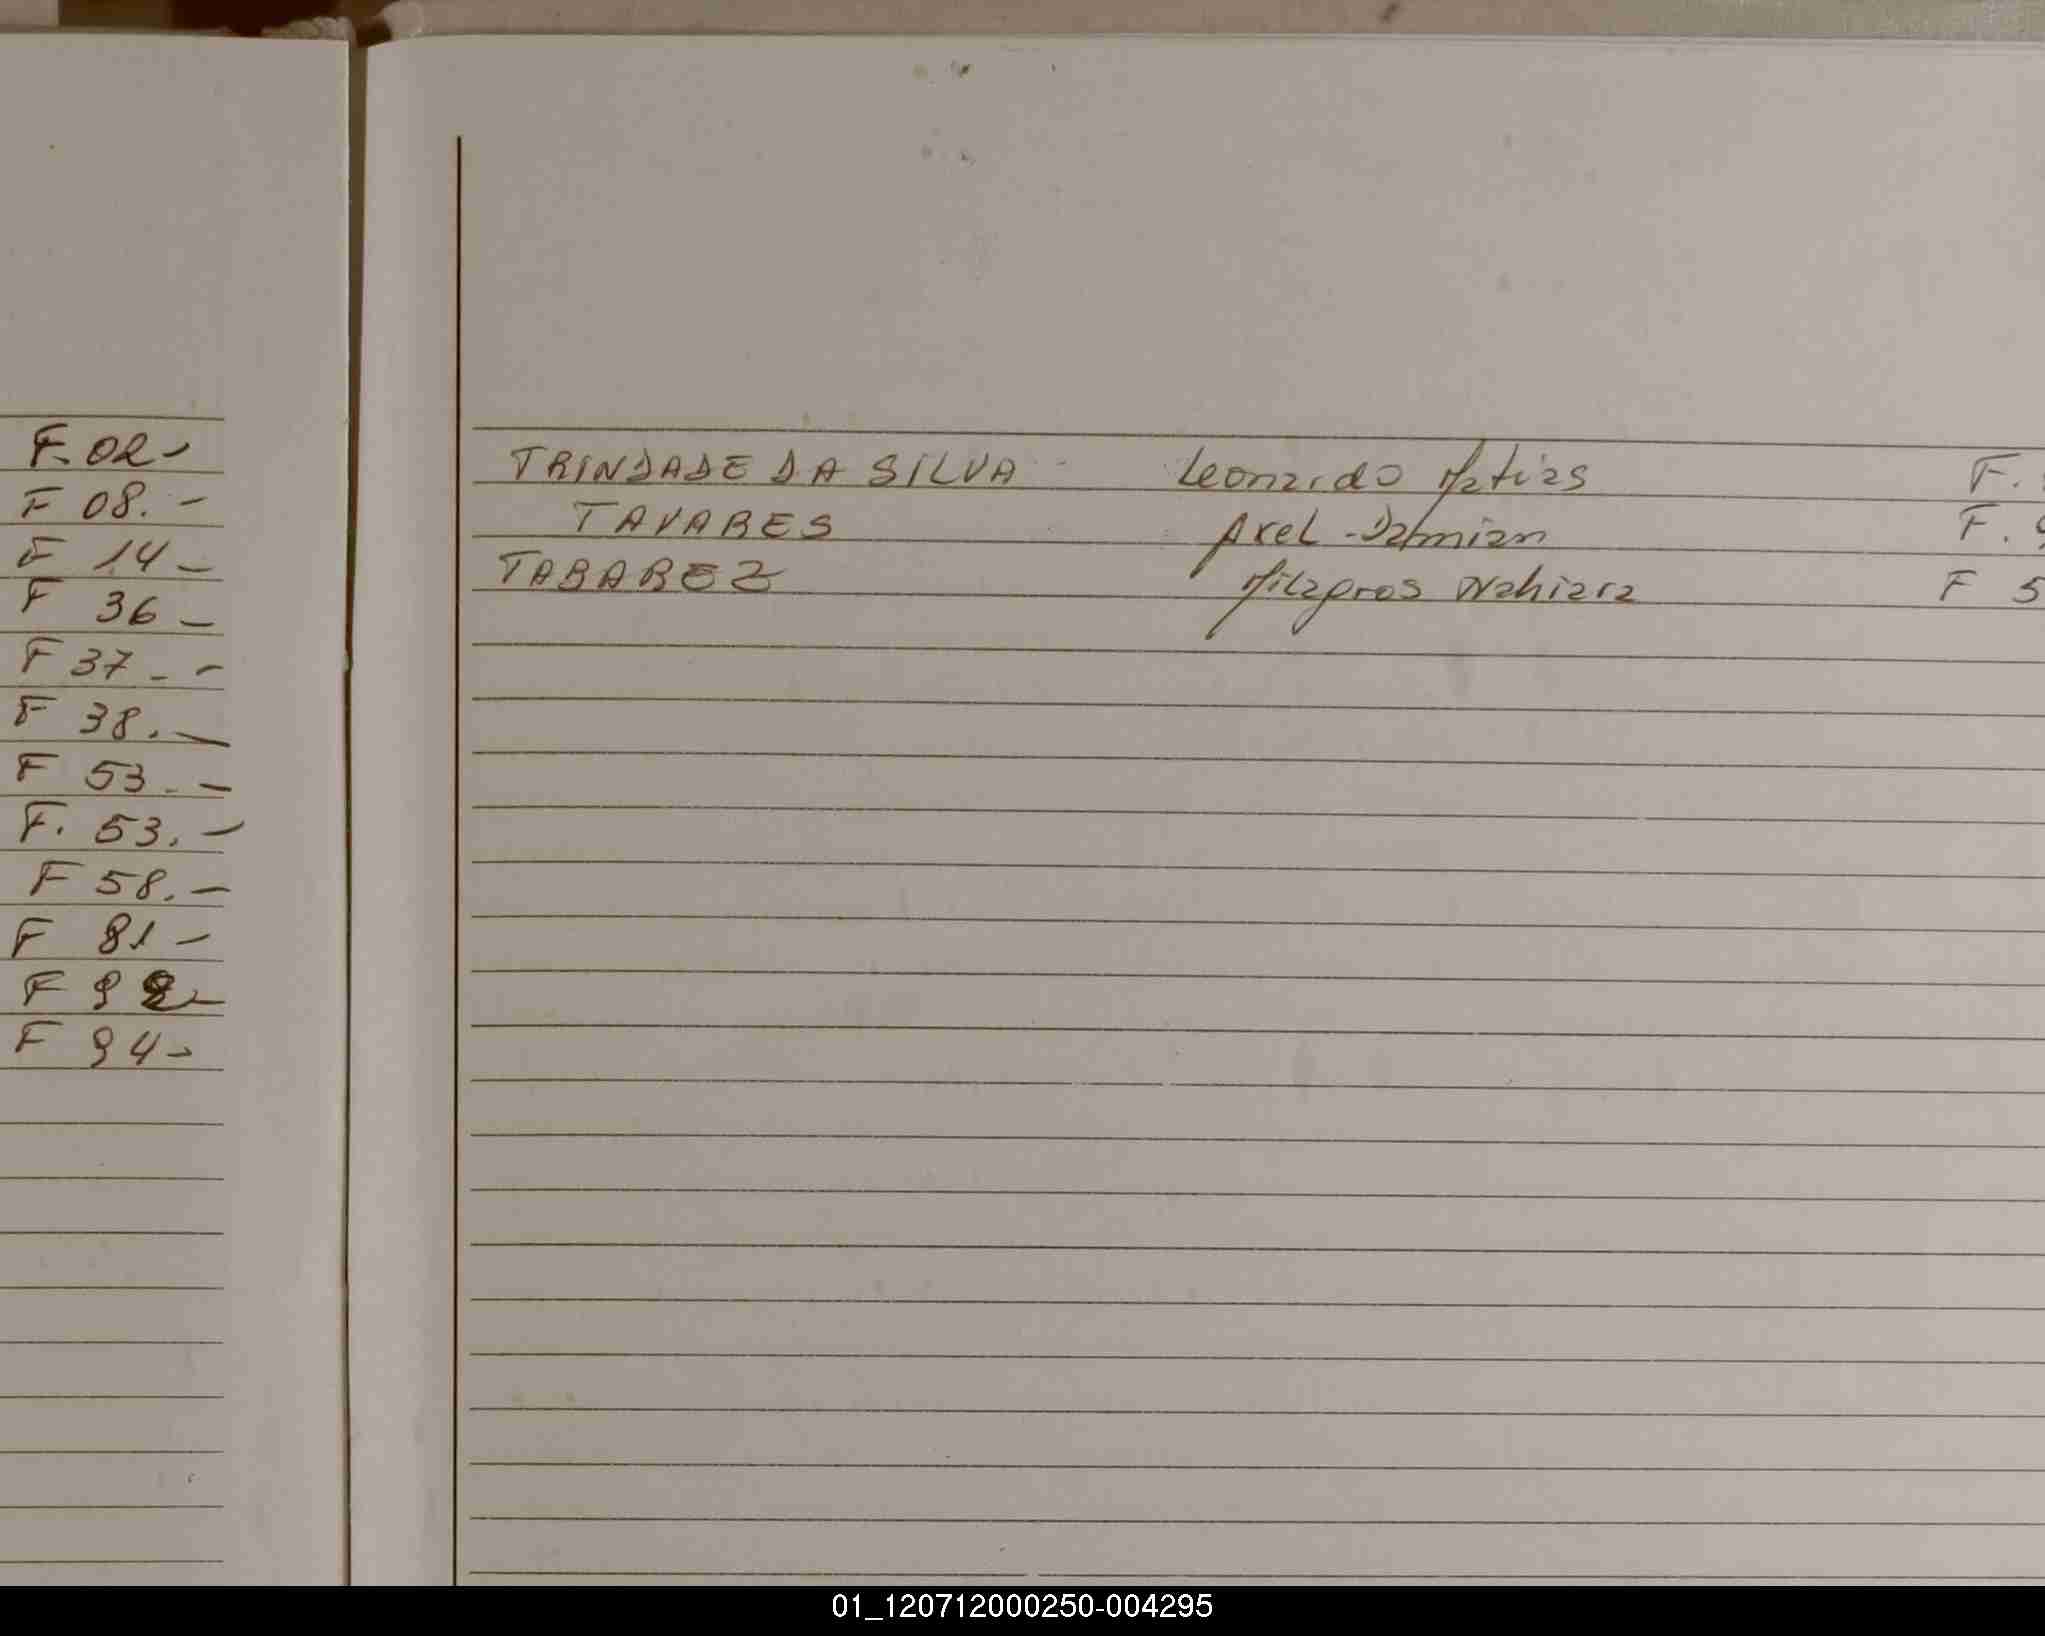 F. 02-
F 08. -
F 14 -
F 36 -
F 37 - -
F 38. -
F 53. -
F. 53. -
F 58. -
F 81 -
F 92-
F 94-
TRINDADE DA SILVA - Leonardo Matias F.
TAVARES Axel - Damian F. 9
TABAREZ Milagros Nahiara F 5
01_120712000250-004295